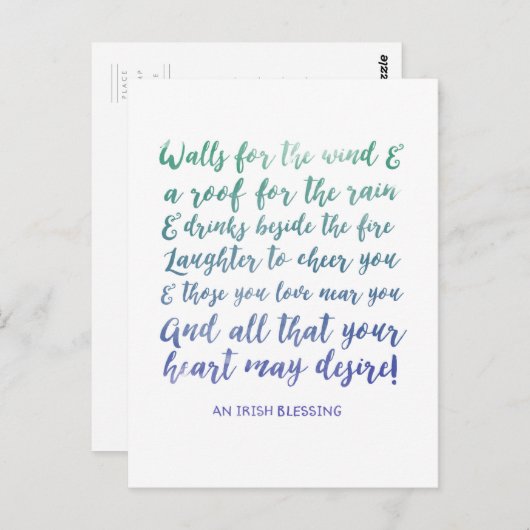 Walls for the wind &
a roof for the rain
& drinks beside the fire
Laughter to cheer you
& those you love near you
And all that your
heart may desire!
AN IRISH BLESSING
PLACE